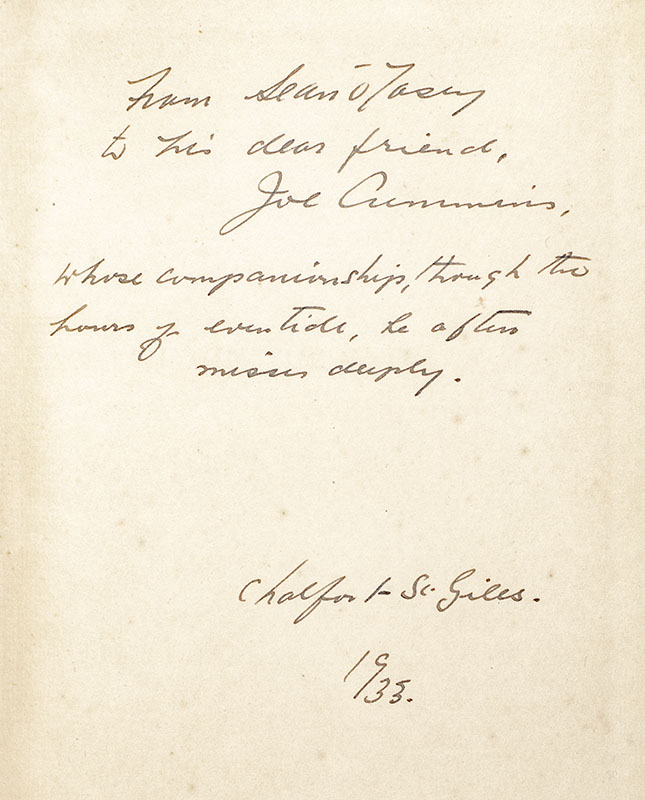 From Sean O'Casey
to his dear friend,
Joe Cummins,
whose companionship, through the
hours of eventide, he often
misses deeply.
Chalfont St. Giles.
1933.